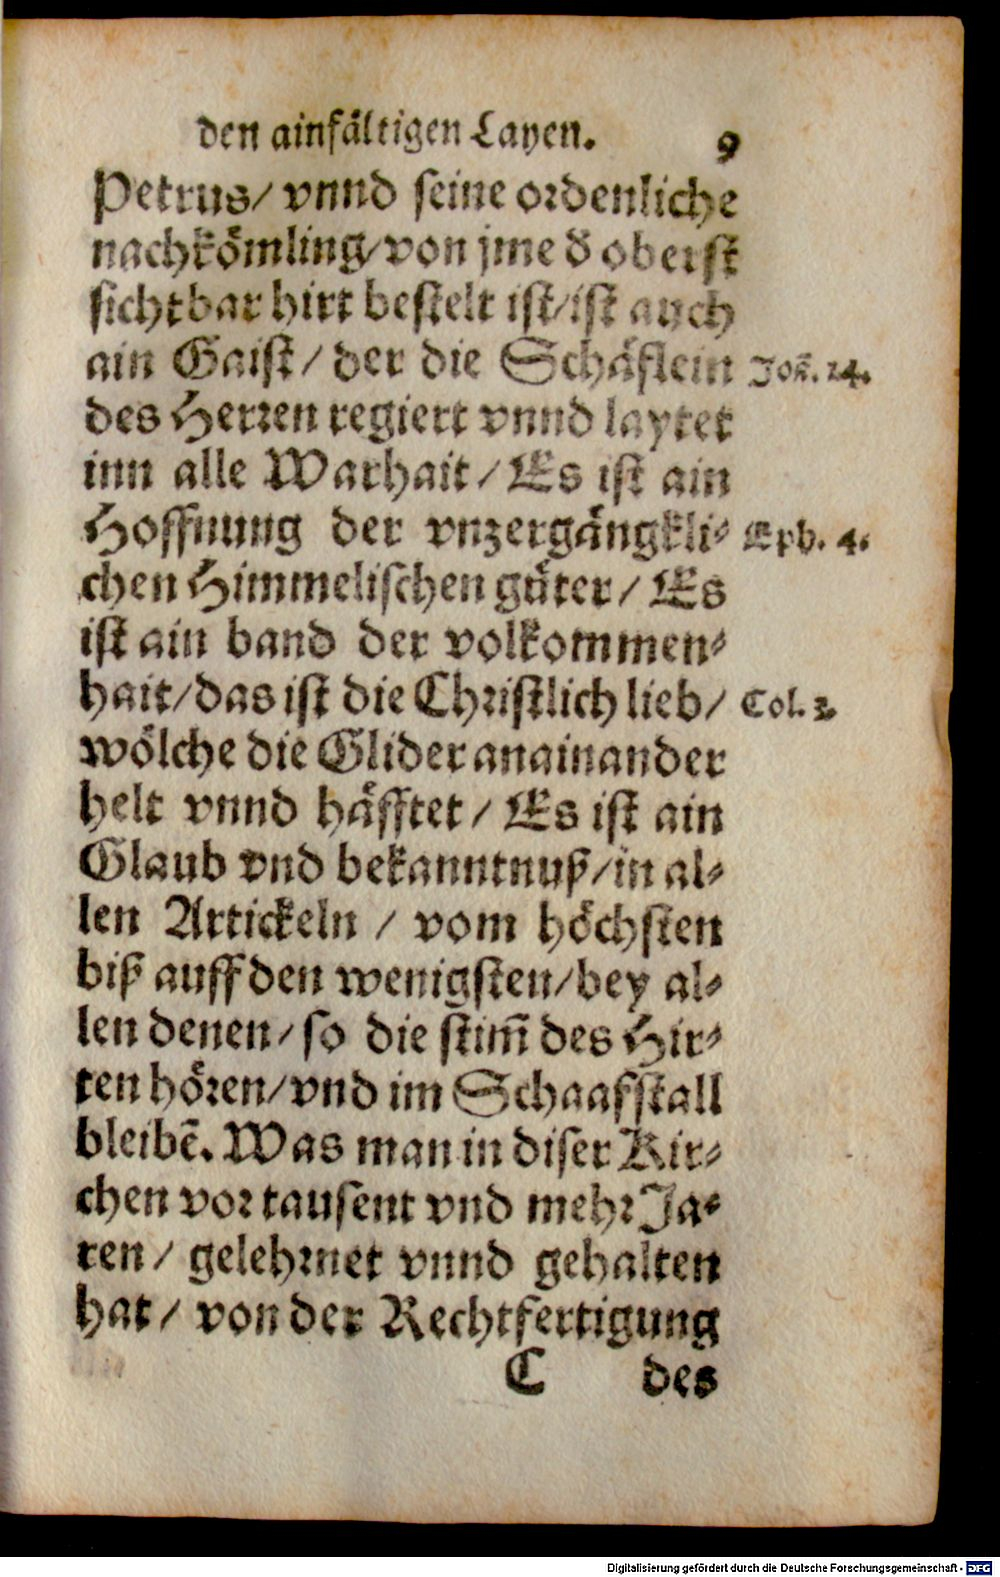 den ainfältigen Layen. 9
Petrus/ vnnd seine ordenliche
nachkömling/von jme d̄ oberst
sichtbar hirt bestelt ist/ist auch
ain Gaist/ der die Schäflein
Joh̄. 14.
des Herren regiert vnnd laytet
inn alle Warhait/ Es ist ain
Hoffnung der vnzergängkli⸗
Eph. 4.
chen Himmelischen güter/ Es
ist ain band der volkommen⸗
hait/das ist die Christlich lieb/
Col. 3.
wölche die Glider anainander
helt vnnd häfftet/ Es ist ain
Glaub vnd bekanntnuß/in al⸗
len Artickeln / vom höchsten
biß auff den wenigsten/bey al⸗
len denen/so die stim̄ des Hir⸗
ten hören/vnd im Schaafstall
bleibē. Was man in diser Kir⸗
chen vor tausent vnd mehr Ja⸗
ren/ gelehrnet vnnd gehalten
hat/ von der Rechtfertigung
C des
Digitalisierung gefördert durch die Deutsche Forschungsgemeinschaft - DFG